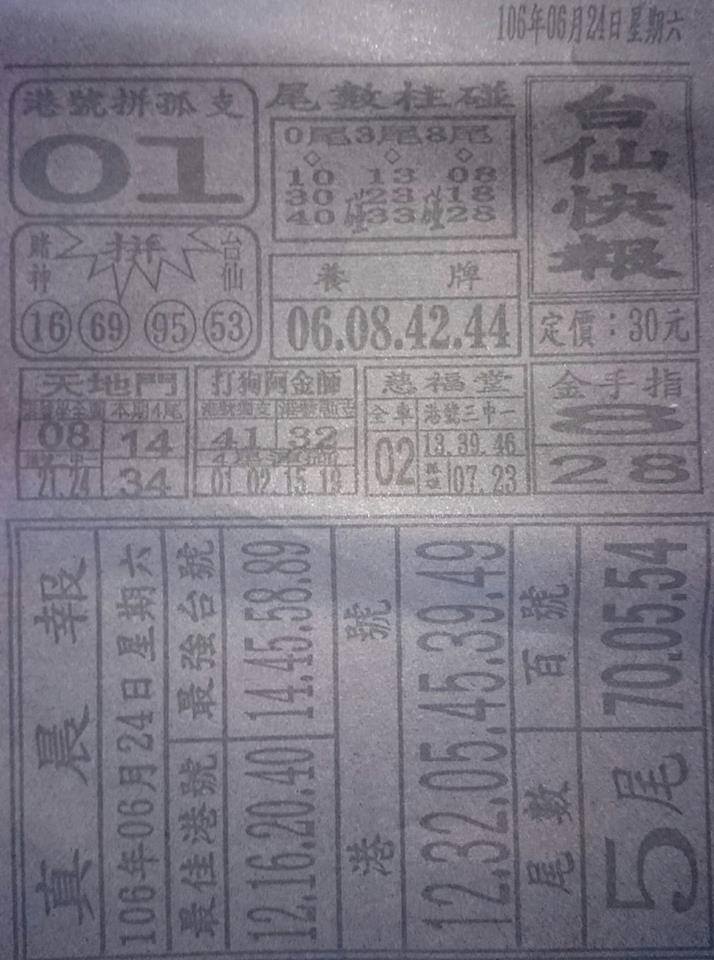 106年06月24日星期六
港號拼孤支
01
尾數柱碰
0尾3尾8尾
10 13 08
30 23 18
40 33 28
碰 碰
台仙快報
賭神 拼 台仙
16 69 95 53
養牌
06.08.42.44
定價：30元
天地門
本期4尾
08 14
21.24 34
打狗阿金師
41 32
01.02.15.19
慈福堂
全車 港號三中一
02 13.39.46
07.23
金手指
8
28
真晨報
106年06月24日星期六
最佳港號 最強台號
12.16.20.40 14.45.58.89
港號
12.32.05.45.39.49
尾數 百號
5尾 70.05.54